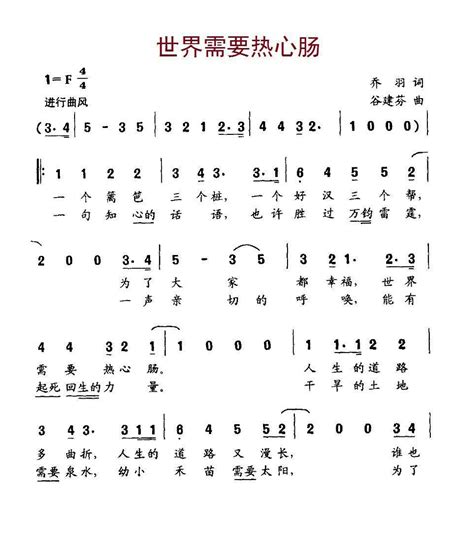 世界需要热心肠
1=F 4/4
乔羽 词
进行曲风
谷建芬 曲
(3·4 | 5 - 3 5 | 3 2 1 2·3 | 4 4 3 2· | 1 0 0 0) |
1 1 2 2 | 3 4 3· 3·1 | 6 4 5 5 2 |
一个篱笆三个桩，一个好汉三个帮，
一句知心的话语，也许胜过万钧雷霆，
2 0 0 3·4 | 5 - 3 5 | 3 2 1 2·3 |
为了大家都幸福，世界
一声亲切的呼唤，能有
4 4 3 2 1 | 1 0 0 0 | 1 1·1 2 2 |
需要热心肠。人生的道路
起死回生的力量。干旱的土地
3 4 3· 3 1 1 | 2·4 4 5 5 2 | 2 0 0 3 4 |
多曲折，人生的道路又漫长，谁也
需要泉水，幼小禾苗需要太阳，为了